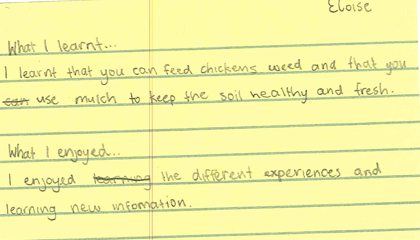 Eloise
What I learnt...
I learnt that you can feed chickens weed and that you
can use mulch to keep the soil healthy and fresh.
What I enjoyed...
I enjoyed learning the different experiences and
learning new infomation.